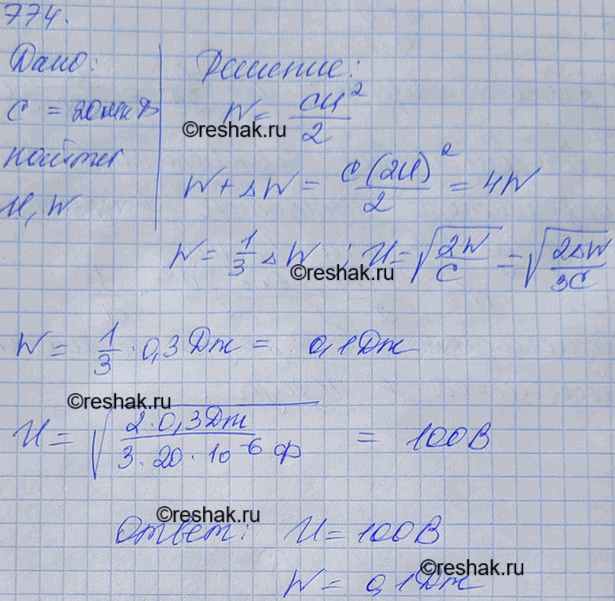 774.
Дано:
C = 20мкФ
найти
U, W
Решение:
W = CU²/2
©reshak.ru
W + ΔW = C(2U)²/2 = 4W
W = 1/3 ΔW ; U = √(2W/C) = √(2ΔW/3C)
©reshak.ru
W = 1/3 · 0,3 Дж = 0,1 Дж
©reshak.ru
U = √(2·0,3Дж/3·20·10⁻⁶ Ф) = 100В
©reshak.ru
Ответ: U = 100В
©reshak.ru
W = 0,1 Дж